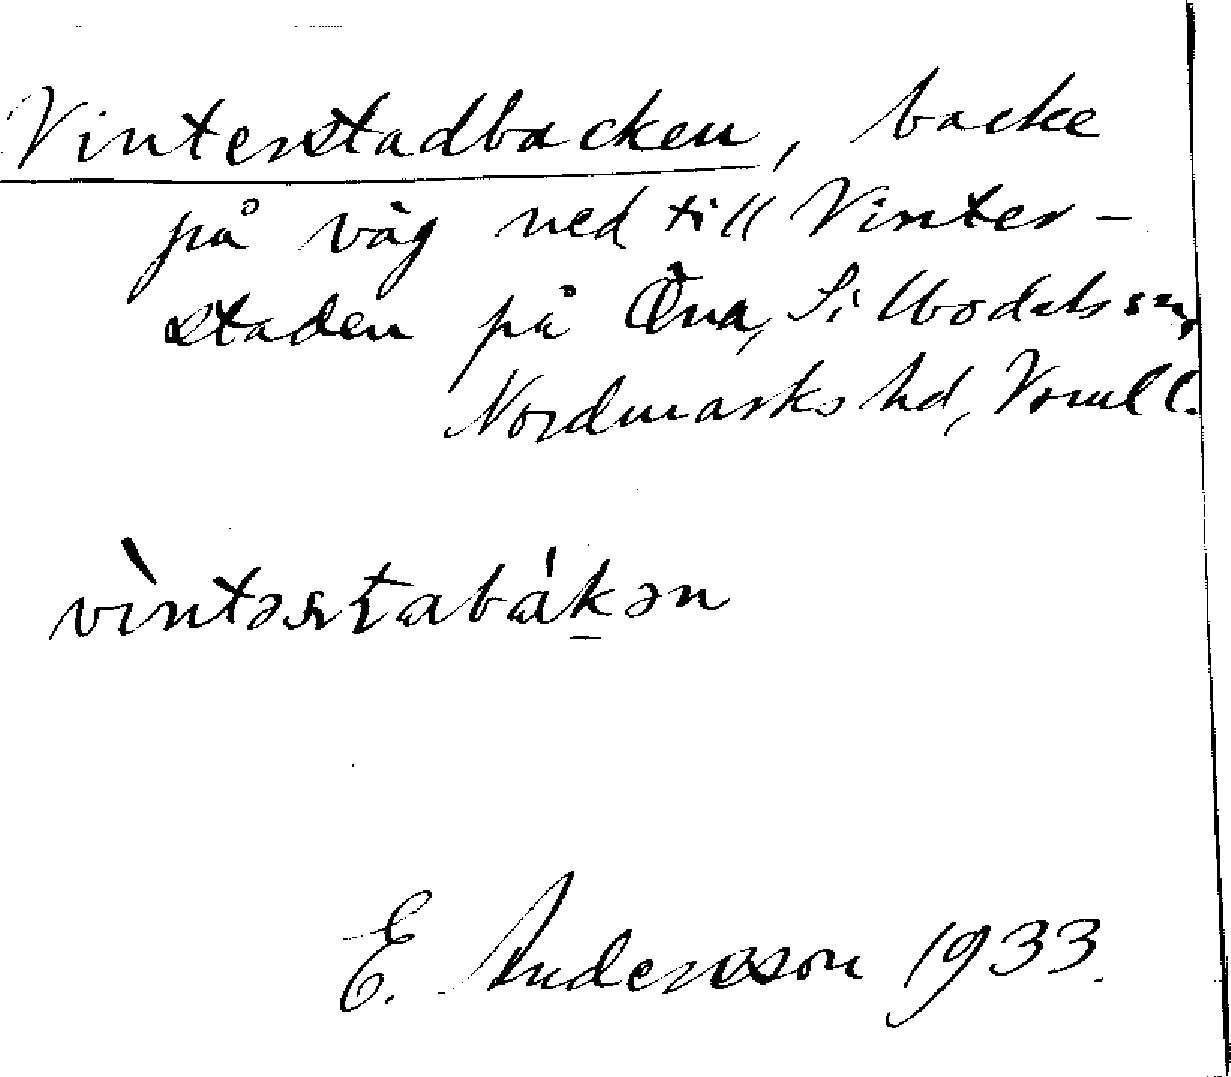 Vinterstadbacken, backe
på väg ned till Vinter-
staden på Öna, Sillbodals sn,
Nordmarks hd, Vrml l.
vìntərstabákən
E. Andersson 1933.